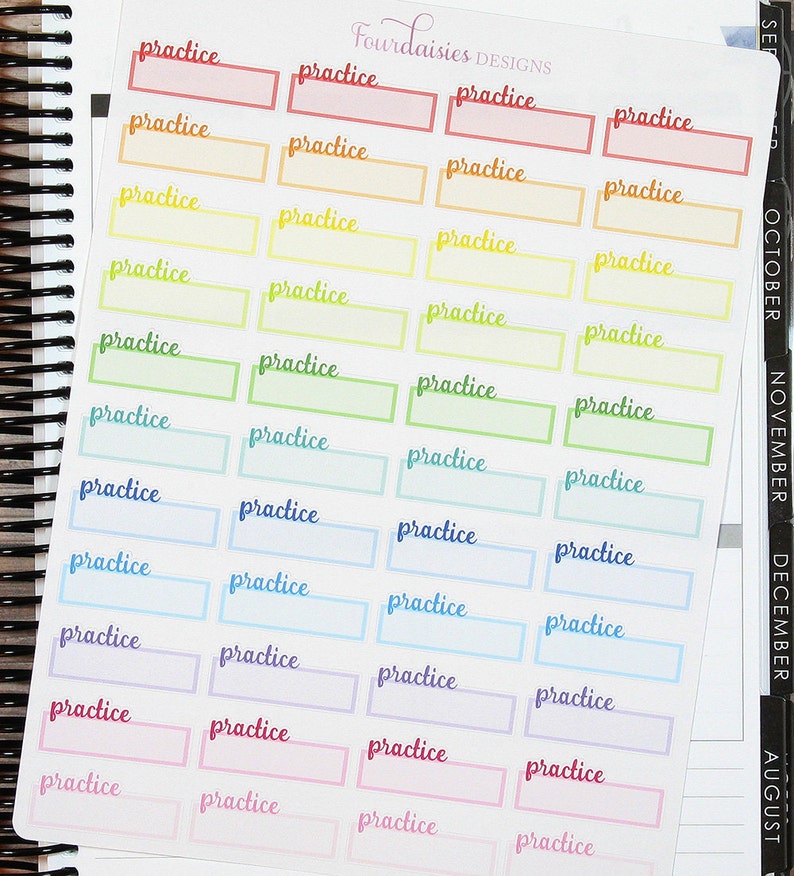 Fourdaisies DESIGNS
practice practice practice practice
practice practice practice practice
practice practice practice practice
practice practice practice practice
practice practice practice practice
practice practice practice practice
practice practice practice practice
practice practice practice practice
practice practice practice practice
practice practice practice practice
practice practice practice practice
OCTOBER
NOVEMBER
DECEMBER
AUGUST